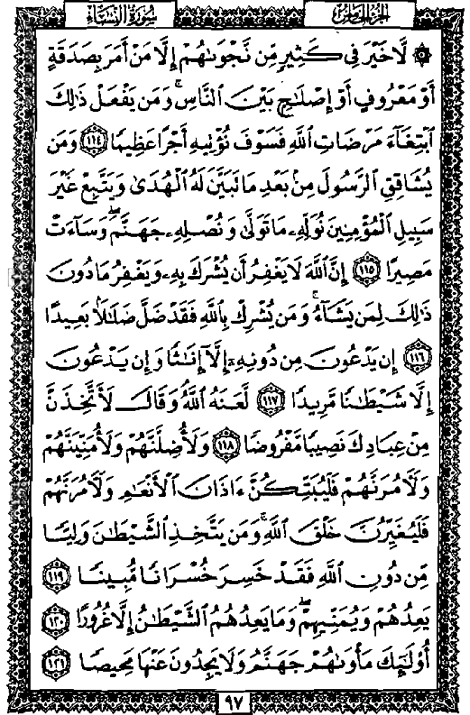 سُورَةُ النِّسَاءِ الجزء الخامس
۞ لَّا خَيْرَ فِي كَثِيرٍ مِّن نَّجْوَىٰهُمْ إِلَّا مَنْ أَمَرَ بِصَدَقَةٍ
أَوْ مَعْرُوفٍ أَوْ إِصْلَٰحٍۭ بَيْنَ النَّاسِ ۚ وَمَن يَفْعَلْ ذَٰلِكَ
ابْتِغَآءَ مَرْضَاتِ اللَّهِ فَسَوْفَ نُؤْتِيهِ أَجْرًا عَظِيمًا ١١٤ وَمَن
يُشَاقِقِ الرَّسُولَ مِنۢ بَعْدِ مَا تَبَيَّنَ لَهُ الْهُدَىٰ وَيَتَّبِعْ غَيْرَ
سَبِيلِ الْمُؤْمِنِينَ نُوَلِّهِۦ مَا تَوَلَّىٰ وَنُصْلِهِۦ جَهَنَّمَ ۖ وَسَآءَتْ
مَصِيرًا ١١٥ إِنَّ اللَّهَ لَا يَغْفِرُ أَن يُشْرَكَ بِهِۦ وَيَغْفِرُ مَا دُونَ
ذَٰلِكَ لِمَن يَشَآءُ ۚ وَمَن يُشْرِكْ بِاللَّهِ فَقَدْ ضَلَّ ضَلَٰلًۢا بَعِيدًا
١١٦ إِن يَدْعُونَ مِن دُونِهِۦٓ إِلَّآ إِنَٰثًا وَإِن يَدْعُونَ
إِلَّا شَيْطَٰنًا مَّرِيدًا ١١٧ لَّعَنَهُ اللَّهُ ۘ وَقَالَ لَأَتَّخِذَنَّ
مِنْ عِبَادِكَ نَصِيبًا مَّفْرُوضًا ١١٨ وَلَأُضِلَّنَّهُمْ وَلَأُمَنِّيَنَّهُمْ
وَلَءَامُرَنَّهُمْ فَلَيُبَتِّكُنَّ ءَاذَانَ الْأَنْعَٰمِ وَلَءَامُرَنَّهُمْ
فَلَيُغَيِّرُنَّ خَلْقَ اللَّهِ ۚ وَمَن يَتَّخِذِ الشَّيْطَٰنَ وَلِيًّا
مِّن دُونِ اللَّهِ فَقَدْ خَسِرَ خُسْرَانًا مُّبِينًا ١١٩
يَعِدُهُمْ وَيُمَنِّيهِمْ ۖ وَمَا يَعِدُهُمُ الشَّيْطَٰنُ إِلَّا غُرُورًا ١٢٠
أُو۟لَٰٓئِكَ مَأْوَىٰهُمْ جَهَنَّمُ وَلَا يَجِدُونَ عَنْهَا مَحِيصًا ١٢١
٩٧